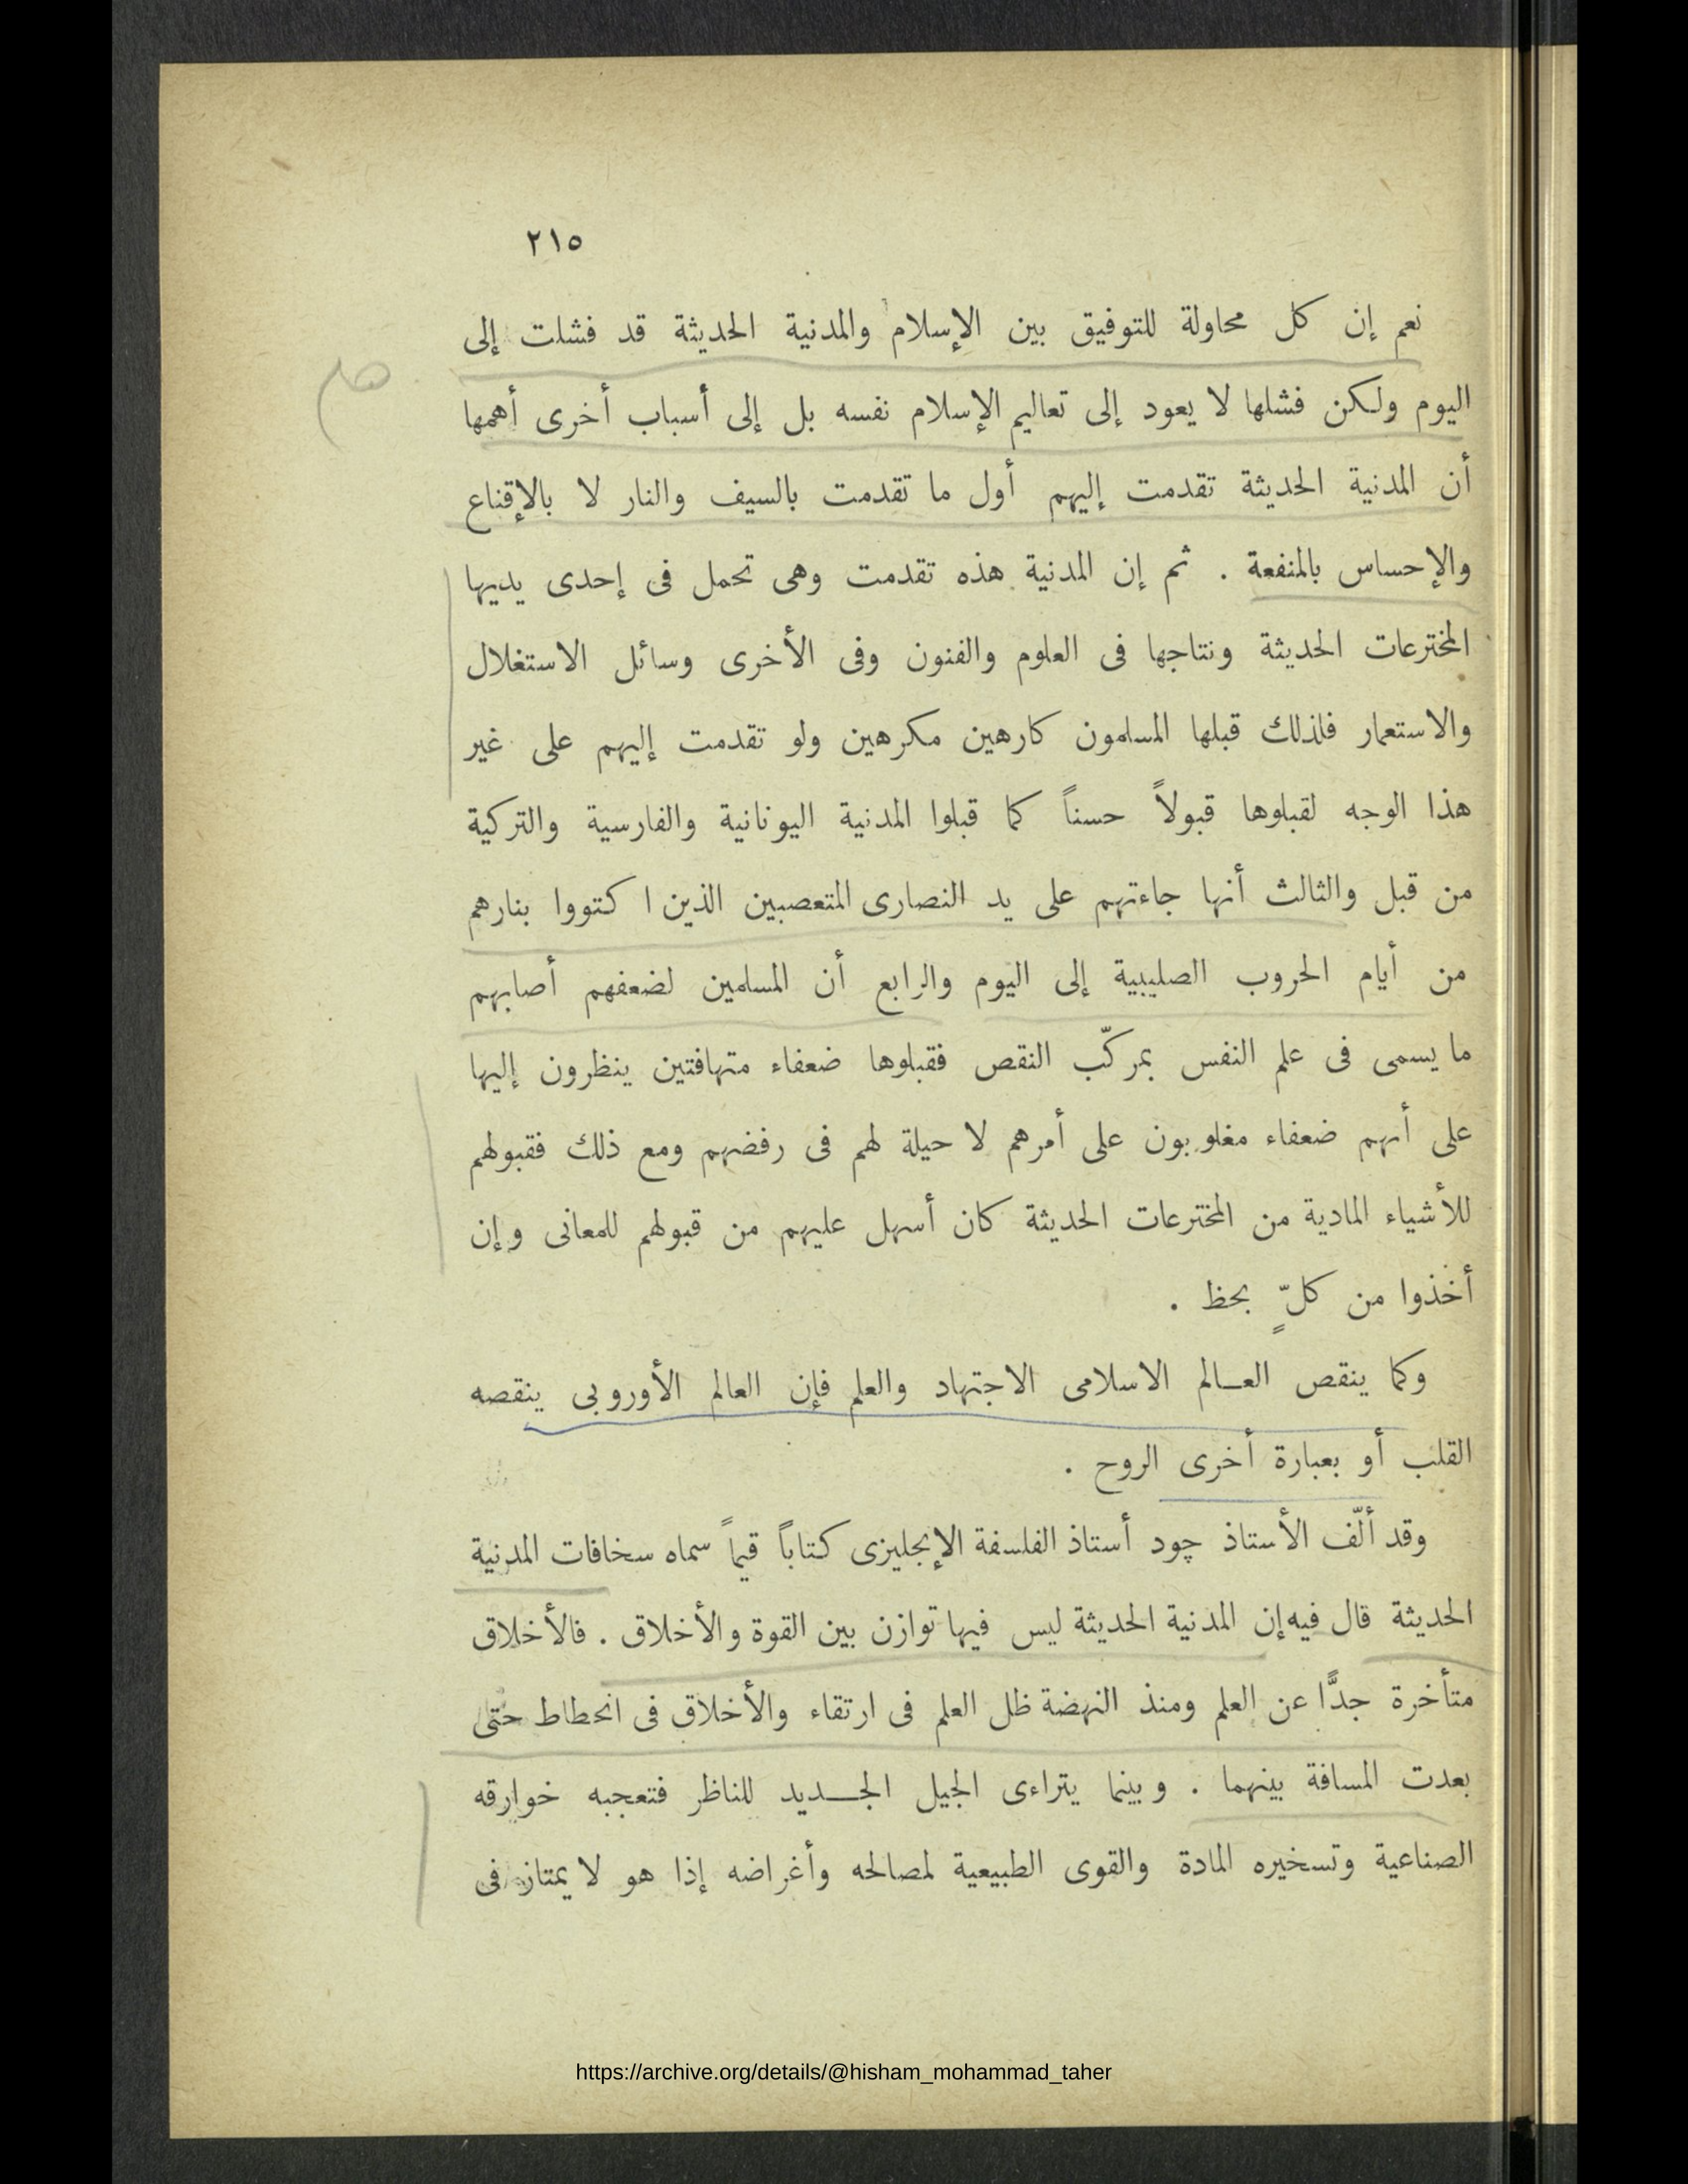 ٢١٥
نعم إن كل محاولة للتوفيق بين الإسلام والمدنية الحديثة قد فشلت إلى
هام
اليوم ولكن فشلها لا يعود إلى تعاليم الإسلام نفسه بل إلى أسباب أخرى أهمها
أن المدنية الحديثة تقدمت إليهم أول ما تقدمت بالسيف والنار لا بالإقناع
والإحساس بالمنفعة . ثم إن المدنية هذه تقدمت وهى تحمل فى إحدى يديها
المخترعات الحديثة ونتاجها فى العلوم والفنون وفى الأخرى وسائل الاستغلال
والاستعمار فلذلك قبلها المسلمون كارهين مكرهين ولو تقدمت إليهم على غير
هذا الوجه لقبلوها قبولاً حسناً كما قبلوا المدنية اليونانية والفارسية والتركية
من قبل والثالث أنها جاءتهم على يد النصارى المتعصبين الذين اكتووا بنارهم
من أيام الحروب الصليبية إلى اليوم والرابع أن المسلمين لضعفهم أصابهم
ما يسمى فى علم النفس بمركّب النقص فقبلوها ضعفاء متهافتين ينظرون إليها
على أنهم ضعفاء مغلوبون على أمرهم لا حيلة لهم فى رفضهم ومع ذلك فقبولهم
للأشياء المادية من المخترعات الحديثة كان أسهل عليهم من قبولهم للمعانى وإن
أخذوا من كلٍّ بحظ .
وكما ينقص العـالم الاسلامى الاجتهاد والعلم فإن العالم الأوروبى ينقصه
القلب أو بعبارة أخرى الروح .
وقد ألّف الأستاذ چود أستاذ الفلسفة الإنجليزى كتاباً قيماً سماه سخافات المدنية
الحديثة قال فيه إن المدنية الحديثة ليس فيها توازن بين القوة والأخلاق . فالأخلاق
متأخرة جدًّا عن العلم ومنذ النهضة ظل العلم فى ارتقاء والأخلاق فى انحطاط حتى
بعدت المسافة بينهما . وبينما يتراءى الجيل الجـــديد للناظر فتعجبه خوارقه
الصناعية وتسخيره المادة والقوى الطبيعية لمصالحه وأغراضه إذا هو لا يمتاز فى
https://archive.org/details/@hisham_mohammad_taher